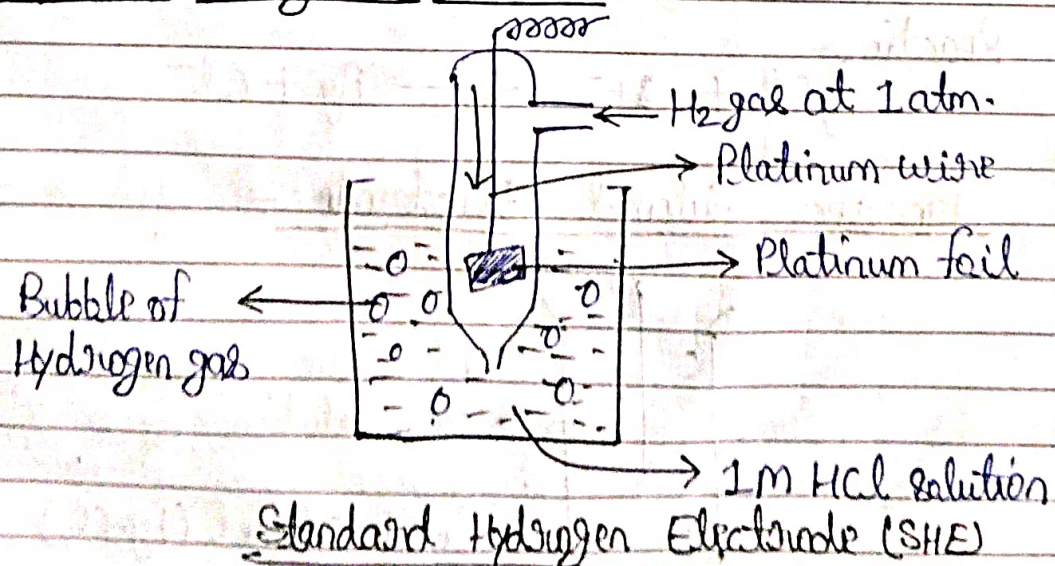 H2 gas at 1 atm.
Platinum wire
Platinum foil
Bubble of
Hydrogen gas
1M HCl solution
Standard Hydrogen Electrode (SHE)